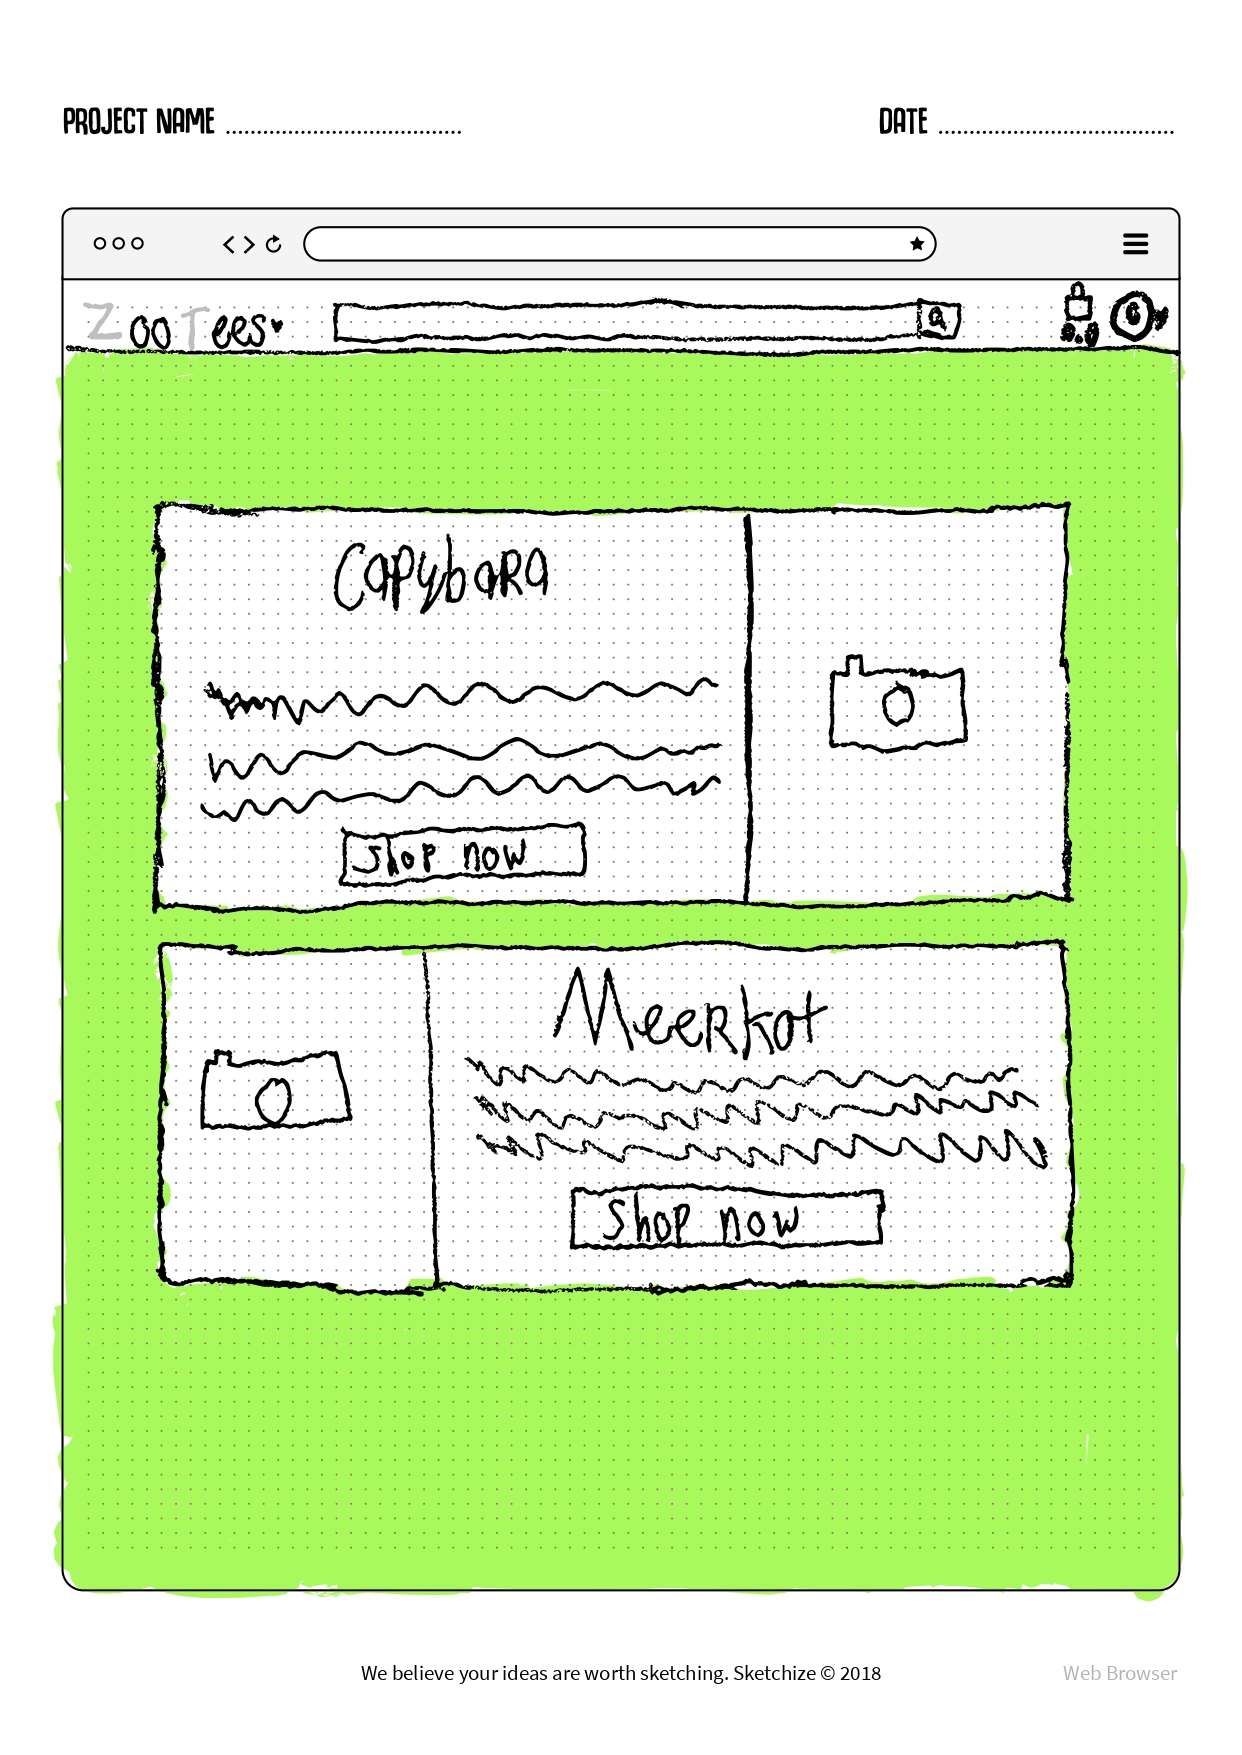 PROJECT NAME
DATE
Zoo Tees
Capybara
Shop now
Meerkat
Shop now
We believe your ideas are worth sketching. Sketchize © 2018
Web Browser